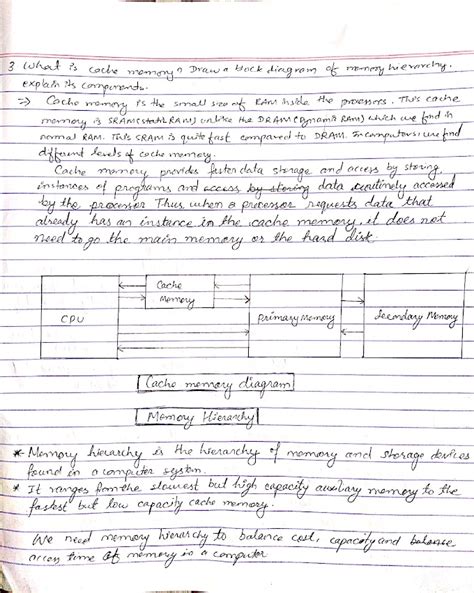 3 What is cache memory? Draw a block diagram of memory hierarchy.
explain its components.
=> Cache memory is the small size of RAM inside the processors. This cache
memory is SRAM (static RAM) unlike the DRAM (Dynamic RAM) which we find in
normal RAM. This SRAM is quite fast compared to DRAM. In computers we find
different levels of cache memory.
Cache memory provides faster data storage and access by storing
instances of programs and access by storing data routinely accessed
by the processor Thus when a processor requests data that
already has an instance in the cache memory, it does not
need to go the main memory or the hard disk.
Cache
Memory
CPU
Primary Memory
Secondary Memory
Cache memory diagram
Memory Hierarchy
* Memory hierarchy is the hierarchy of memory and storage devices
found in a computer system.
* It ranges from the slowest but high capacity auxilary memory to the
fastest but low capacity cache memory.
We need memory hierarchy to balance cost, capacity and balance
access time of memory in a computer